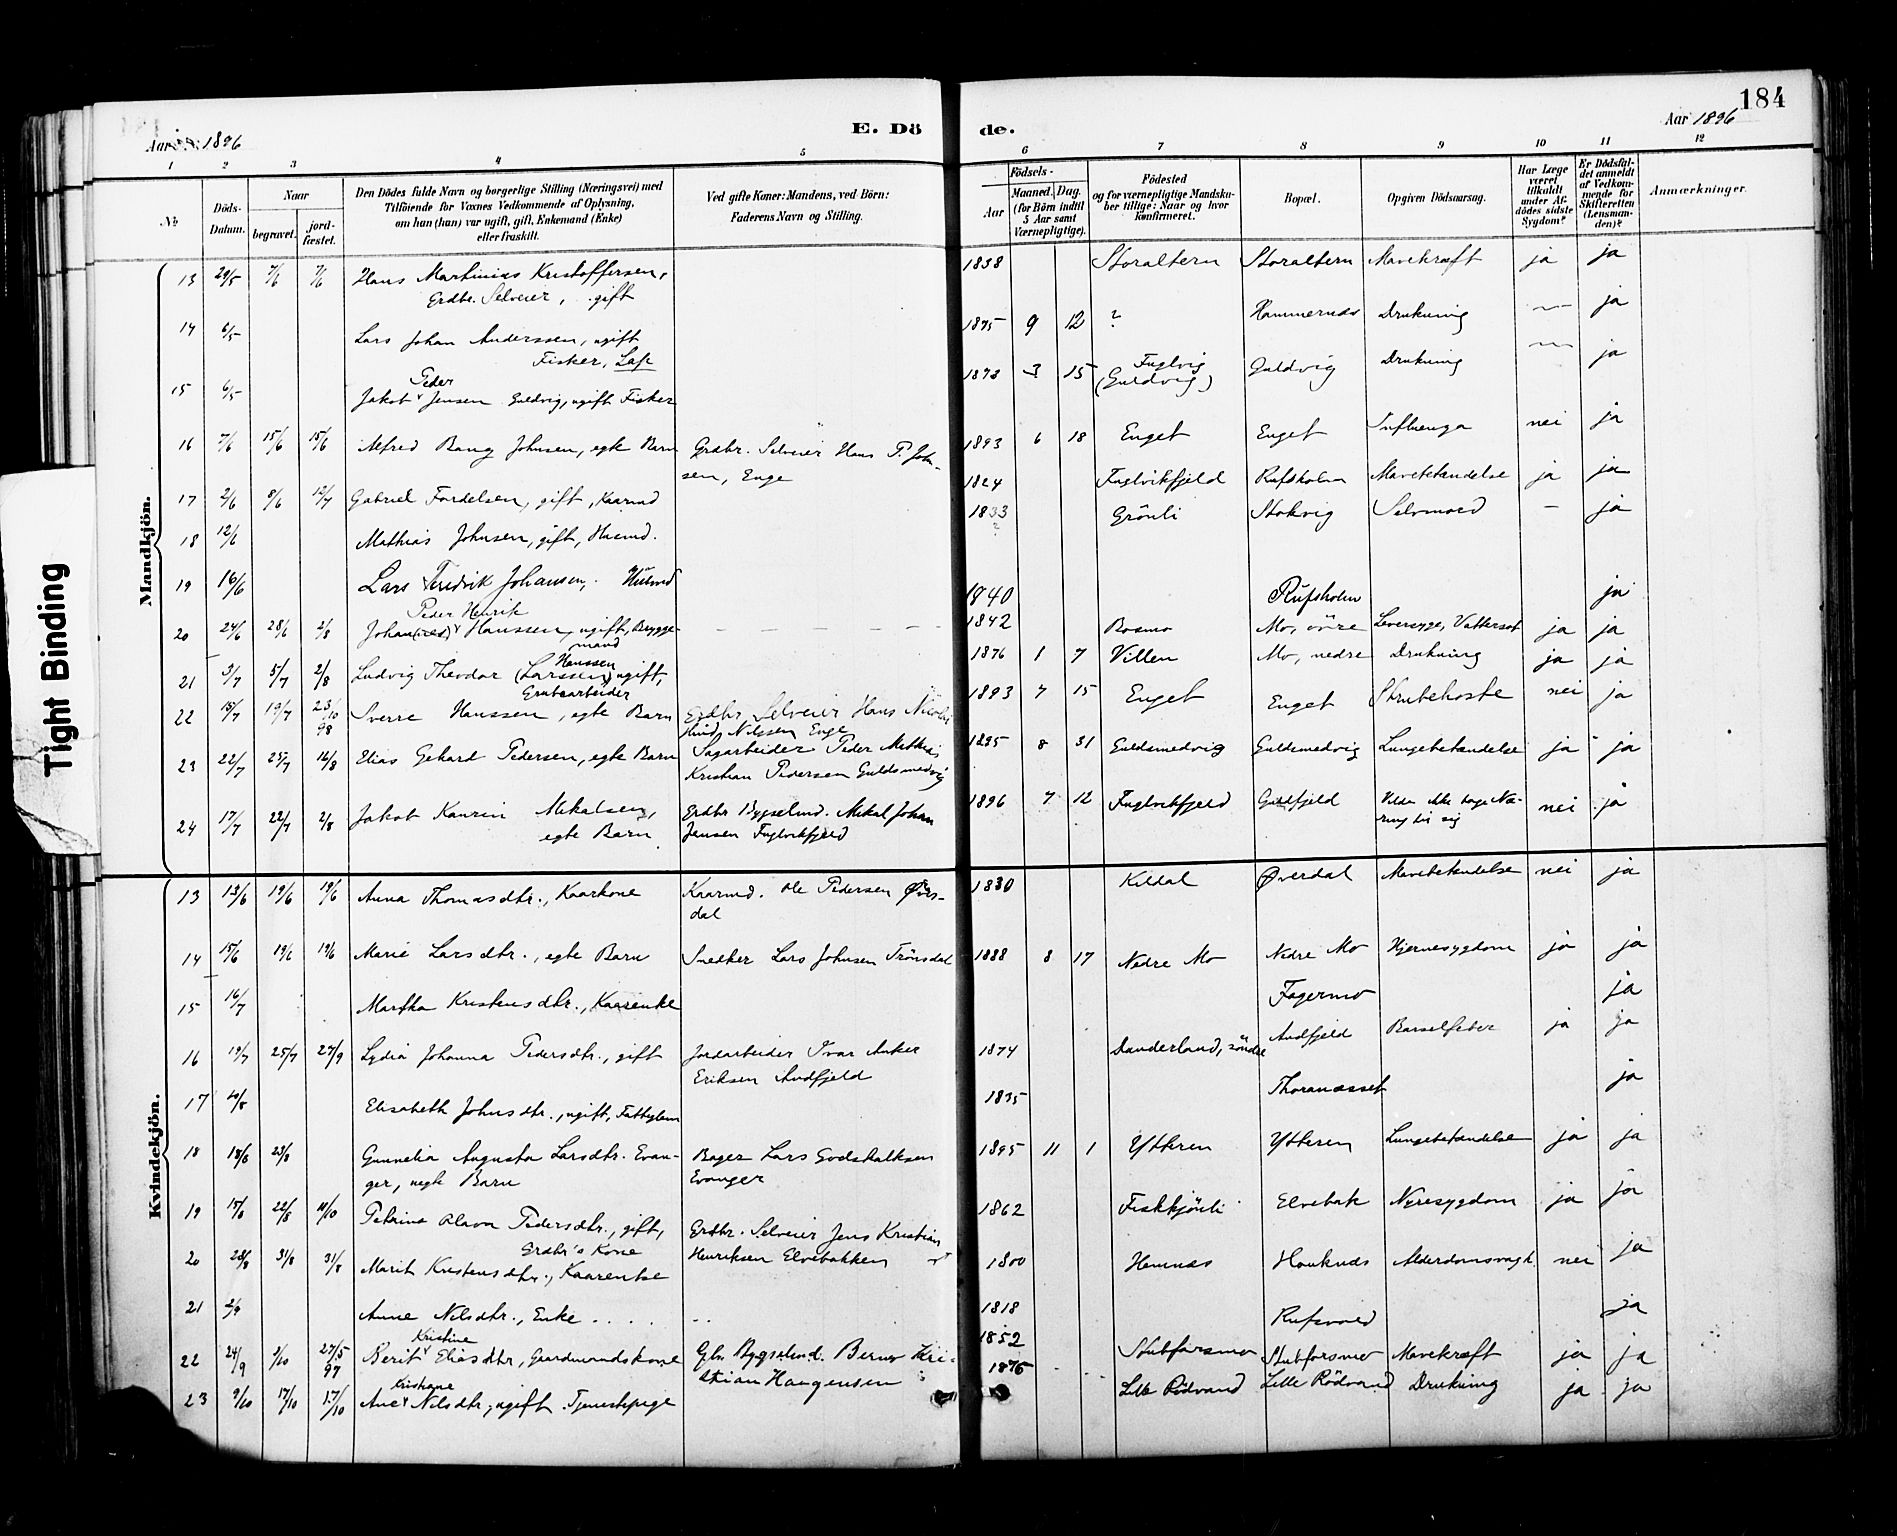 184
Aar 1896
E. Döde.
Aar 1896
1 2 3 4 5 6 7 8 9 10 11 12
No.
Döds-Datum.
Naar
begravet.
jordfæstet.
Den Dödes fulde Navn og borgerlige Stilling (Næringsvei) med
Tilföiende for Voxnes Vedkommende af Oplysning,
om han (hun) var ugift, gift, Enkemand (Enke)
eller fraskilt.
Ved gifte Koner: Mandens, ved Börn:
Faderens Navn og Stilling.
Födsels-
Aar
Maaned. Dag.
(for Börn indtil
5 Aar samt
Værnepligtige).
Födested
og for værnepligtige Mandskaber tillige: Naar og hvor
konfirmeret.
Bopæl.
Opgiven Dödsaarsag.
Har Læge været tilkaldt under Afdödes sidste Sygdom?
Er Dödsfaldet anmeldt af Vedkommende for Skifteretten (Lensmanden)?
Anmærkninger.
Tight Binding
Mandkjön.
13 29/5 7/6 7/6 Hans Martinius Kristoffersen, 1838 Storaltern Storaltern Mavekræft ja ja
Grdbr. Selveier, gift
14 6/5 Lars Johan Anderssen, ugift 1875 9 12 ? Hammernes Drukning — ja
Fisker, Lap
15 6/5 Jakob Peder Jensen Guldvig, ugift Fisker 1873 3 15 Fuglvig (Guldvig) Guldvig Drukning — ja
16 7/6 15/6 15/6 Alfred Bang Johnsen, egte Barn Grdbr. Selveier Hans P. John- 1893 6 18 Enget Enget Influenza nei ja
sen, Enge
17 2/6 8/6 12/7 Gabriel Fordelsen, gift, Kaarmd 1824 Fuglvikfjeld Rufsholm Mavebetændelse ja ja
18 12/6 Mathias Johnsen, gift, Husmd. 1833 ? Grönli Stokvig Selvmord — ja
19 16/6 Lars Fredrik Johansen, Husmd 1840 Rufsholm ja
20 24/6 28/6 2/8 Johan Peder Henrik Hanssen, ugift, Brygge- 1842 Bosmo Mo, övre Leversyge, Vattersot ja ja
mand
21 3/7 5/7 2/8 Ludvig Theodor (Larssen) Hanssen ugift, 1876 1 7 Villen Mo, nedre Drukning ja ja
Grubearbeider
22 15/7 19/7 23/10 98 Sverre Hanssen, egte Barn Grdbr Selveier Hans Nicolai 1893 7 15 Enget Enget Strubehoste nei ja
Nilssen Enge
23 22/7 25/7 16/8 Elias Gehard Pedersen, egte Barn Sagarbeider Peder Mathias 1895 8 31 Guldsmedvig Guldsmedvig Lungebetændelse ja ja
Kristian Pedersen Guldsmedvig
24 17/7 22/7 2/8 Jakob Kaurin Mikalsen, Grdbr Bygselmd. Mikal Johan 1896 7 12 Fuglvikfjeld Vilde ikke tage Næ- nei ja
egte Barn Jensen Fuglvikfjeld ring til sig
Kvindekjön.
13 13/6 19/6 19/6 Anna Thomasdtr., Kaarkone Kaarmd. Ole Pedersen Övers- 1830 Kildal Överdal Mavebetændelse nei ja
dal
14 15/6 19/6 19/6 Marie Larsdtr., egte Barn Snedker Lars Johnsen Trönsdal 1888 8 17 Nedre Mo Nedre Mo Hjernesygdom ja ja
15 16/7 Martha Kristensdtr., Kaarenke Fagermo ja
16 19/7 25/7 27/9 Lydia Johanna Pedersdtr., gift Jordarbeider Ivar Anker 1874 Dunderland, söndre Andfjeld Barselfeber ja ja
Eriksen Andfjeld
17 Elisabeth Johnsdtr., ugift, Fattiglem 1835 Thoranæsset ja
18 18/8 23/8 Gunnelia Augusta Larsdtr. Evan- Bager Lars Godskalksen 1895 11 1 Ytteren Ytteren Lungebetændelse ja ja
ger, uegte Barn Evanger
19 15/8 22/8 10/10 Petrine Olava Pedersdtr., gift, Grdbr. Selveier Jens Kristian 1862 Fiskkjönli Elvebak Nyresygdom ja ja
Grdbr's Kone Henriksen Elvebakken
20 28/8 31/8 31/8 Marit Kristensdtr., Kaarenke 1800 Hemnæs Hauknes Alderdomsvagh. nei ja
21 2/9 Anne Nilsdtr., Enke 1818 Rufsvold ja
22 24/9 2/10 27/5 97 Berit Kristine Eliasdtr, Gaardmandskone Gbr. Bygselmd. Bernt Kri- 1852 Stubforsmo Stubforsmo Mavekræft ja ja
stian Haugensen
23 9/10 17/10 17/10 Ane Kristiane Nilsdtr, ugift Tjenestepige 1875 Lille Rödvand Lille Rödvand Drukning ja ja